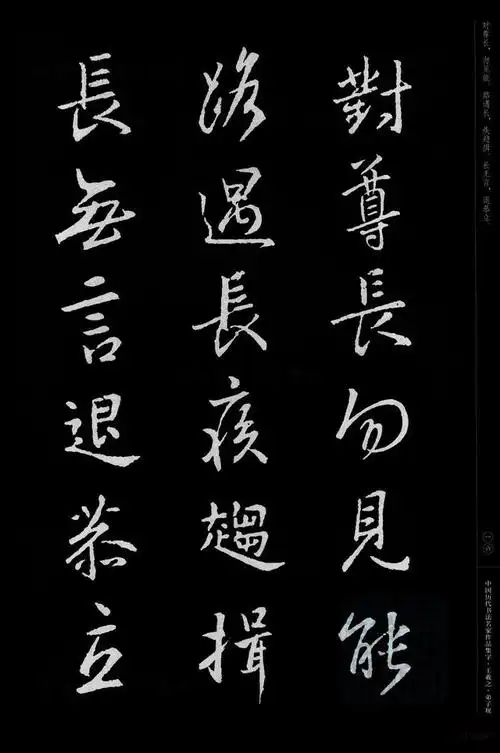 對尊長勿見能
路遇長疾趨揖
長無言退恭立
对尊长，勿见能。路遇长，疾趋揖。长无言，退恭立。
中国历代书法名家作品集字·王羲之·弟子规